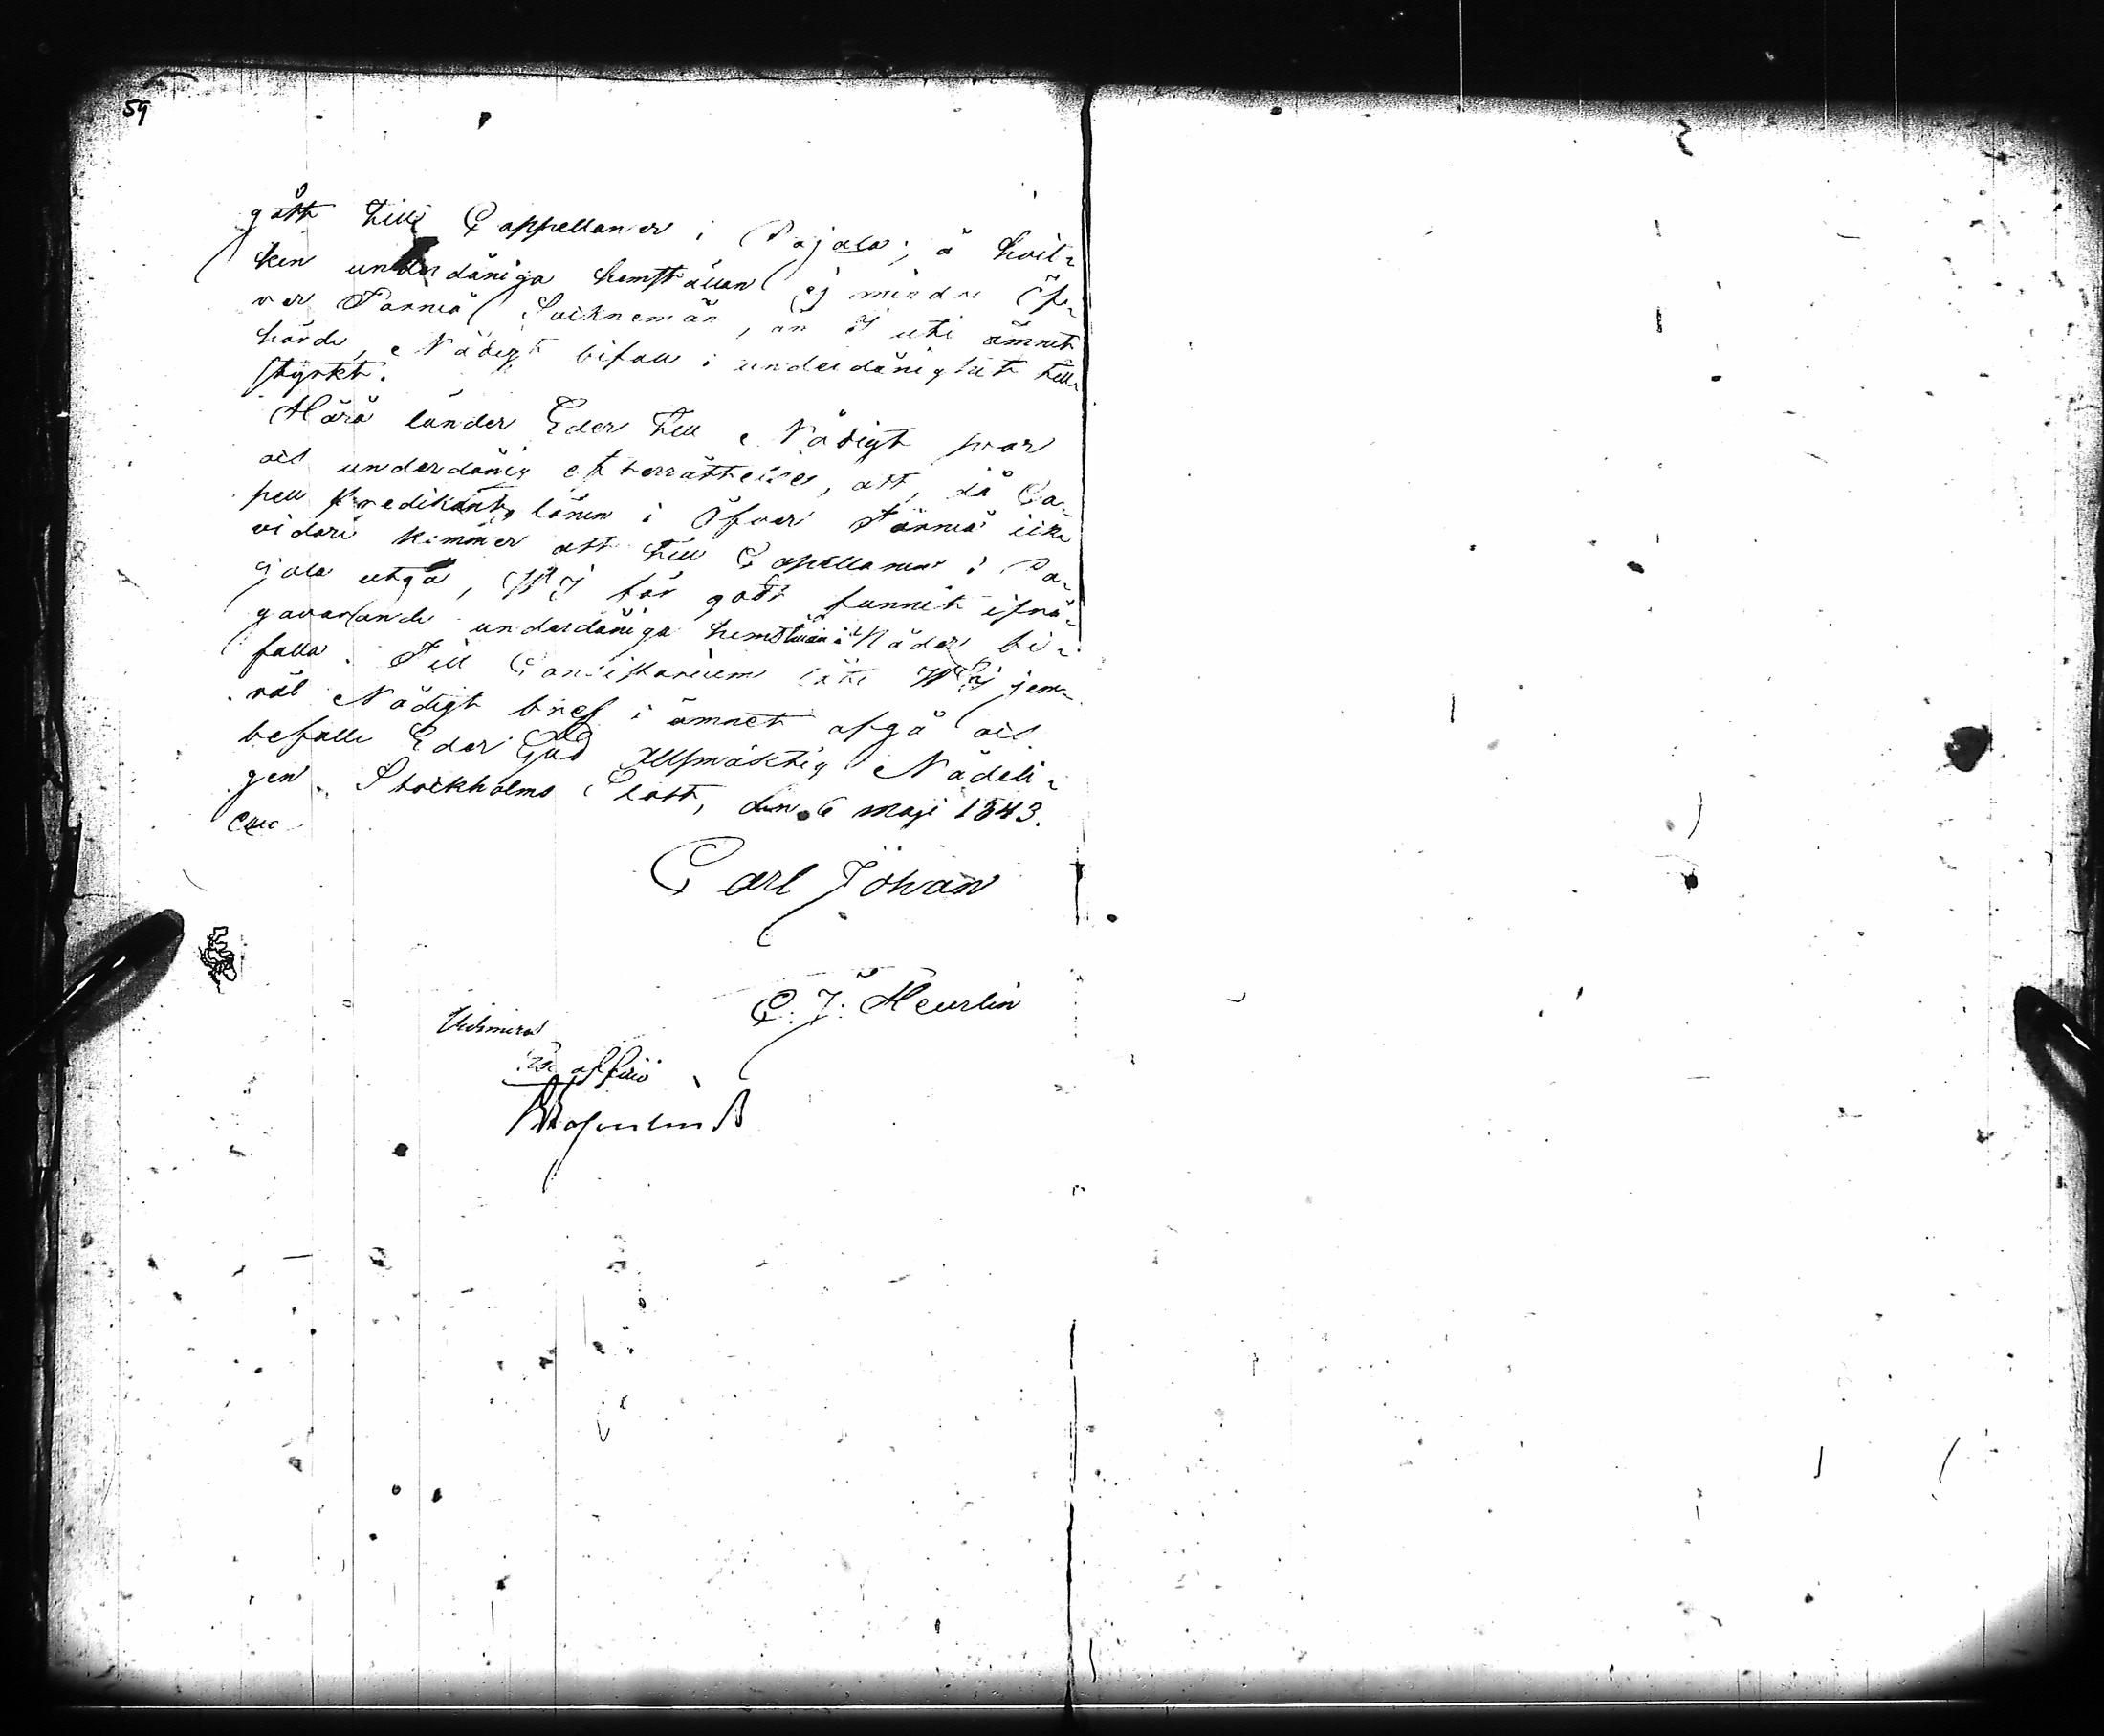 59
gått till Cappellanen i Pajala; å hvil-
ken underdåniga hemställan ej mindre Öf-
ver Torneå Socknemän, än I uti ämnet
hörde, Nådigt bifall i underdånighet till-
styrkt.
Härå länder Eder till Nådigt svar
och underdånig efterrättelse, att, då Ca-
pell Predikants lönen i Öfver Torneå icke
vidare kommer att till Capellanen i Pa-
jala utgå, Wij här godt funnit ifrå-
gavarande underdåniga hemställan i Nåder bi-
falla. Till Consistorium låte Wij jem-
väl Nådigt bref i ämnet afgå och
befalle Eder Gud Allsmäktig Nådeli-
gen. Stockholms Slott, den 6 Maji 1843.
Carl Johan
C. J. Heurlin
Vidimeras
Ex officio